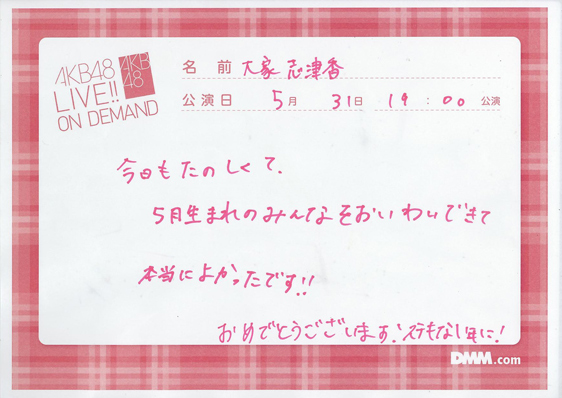 AKB48
LIVE!!
ON DEMAND
AKB
48
名前 大家志津香
公演日 5月 31日 19:00 公演
今日もたのしくて、
5月生まれのみんなをおいわいできて
本当によかったです!!
おめでとうございます!ステキな1年に!
DMM.com